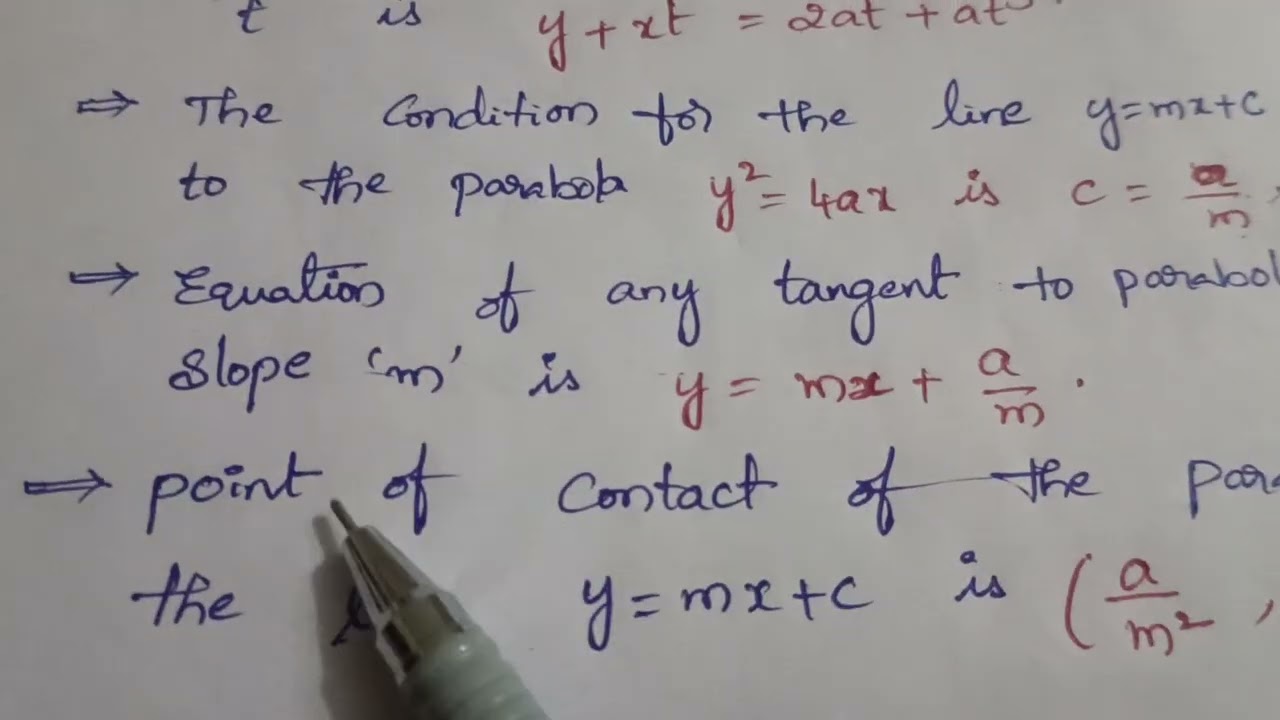 t is y + xt = 2at + at³.
⇒ The Condition for the line y=mx+c
to the parabola y² = 4ax is c = a/m.
⇒ Equation of any tangent to parabol
slope 'm' is y = mx + a/m.
⇒ point of Contact of the par
the y = mx + c is (a/m²,